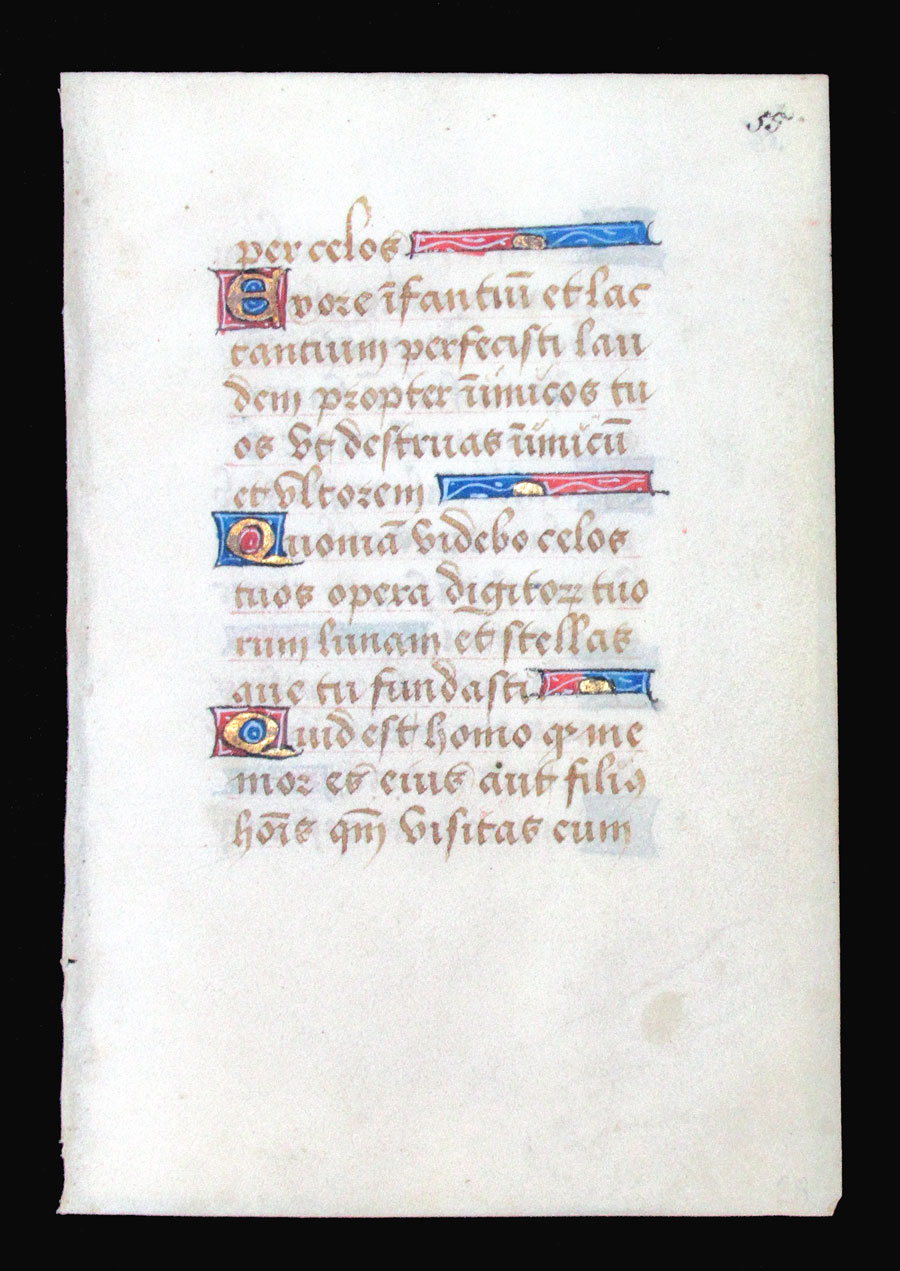 55
per celos
Ex ore īfantiū et lac
tantium perfecisti lau
dem propter inimicos tu
os vt destruas inimicū
et vltorem
Quoniā videbo celos
tuos opera digitoꝝ tuo
rum lunam et stellas
que tu fundasti
Quid est homo ꝙ me
mor es eius aut filiꝰ
hoīs qm̄ visitas eum